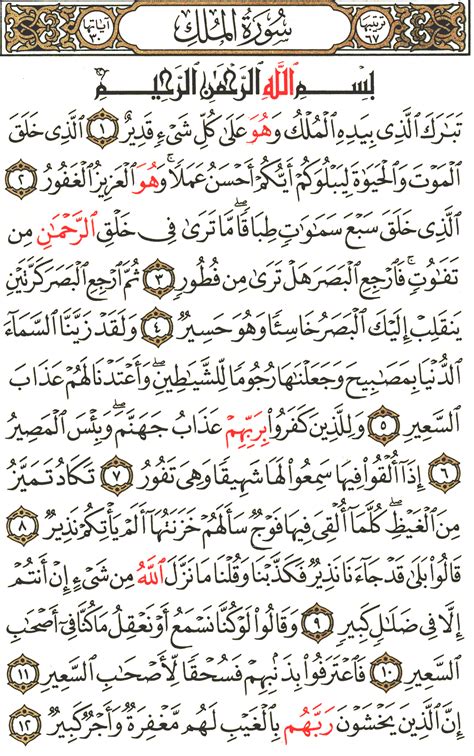 ترتيبها ٦٧ سُورَةُ المُلكِ آياتها ٣٠
بِسْمِ اللَّهِ الرَّحْمَٰنِ الرَّحِيمِ
تَبَٰرَكَ الَّذِي بِيَدِهِ الْمُلْكُ وَهُوَ عَلَىٰ كُلِّ شَيْءٍ قَدِيرٌ ١ الَّذِي خَلَقَ
الْمَوْتَ وَالْحَيَوٰةَ لِيَبْلُوَكُمْ أَيُّكُمْ أَحْسَنُ عَمَلًا ۚ وَهُوَ الْعَزِيزُ الْغَفُورُ ٢
الَّذِي خَلَقَ سَبْعَ سَمَٰوَٰتٍ طِبَاقًا ۖ مَّا تَرَىٰ فِي خَلْقِ الرَّحْمَٰنِ مِن
تَفَٰوُتٍ ۖ فَارْجِعِ الْبَصَرَ هَلْ تَرَىٰ مِن فُطُورٍ ٣ ثُمَّ ارْجِعِ الْبَصَرَ كَرَّتَيْنِ
يَنقَلِبْ إِلَيْكَ الْبَصَرُ خَاسِئًا وَهُوَ حَسِيرٌ ٤ وَلَقَدْ زَيَّنَّا السَّمَآءَ
الدُّنْيَا بِمَصَٰبِيحَ وَجَعَلْنَٰهَا رُجُومًا لِّلشَّيَٰطِينِ ۖ وَأَعْتَدْنَا لَهُمْ عَذَابَ
السَّعِيرِ ٥ وَلِلَّذِينَ كَفَرُوا بِرَبِّهِمْ عَذَابُ جَهَنَّمَ ۖ وَبِئْسَ الْمَصِيرُ
٦ إِذَآ أُلْقُوا فِيهَا سَمِعُوا لَهَا شَهِيقًا وَهِيَ تَفُورُ ٧ تَكَادُ تَمَيَّزُ
مِنَ الْغَيْظِ ۖ كُلَّمَآ أُلْقِيَ فِيهَا فَوْجٌ سَأَلَهُمْ خَزَنَتُهَآ أَلَمْ يَأْتِكُمْ نَذِيرٌ ٨
قَالُوا بَلَىٰ قَدْ جَآءَنَا نَذِيرٌ فَكَذَّبْنَا وَقُلْنَا مَا نَزَّلَ اللَّهُ مِن شَيْءٍ إِنْ أَنتُمْ
إِلَّا فِي ضَلَٰلٍ كَبِيرٍ ٩ وَقَالُوا لَوْ كُنَّا نَسْمَعُ أَوْ نَعْقِلُ مَا كُنَّا فِيٓ أَصْحَٰبِ
السَّعِيرِ ١٠ فَاعْتَرَفُوا بِذَنۢبِهِمْ فَسُحْقًا لِّأَصْحَٰبِ السَّعِيرِ ١١
إِنَّ الَّذِينَ يَخْشَوْنَ رَبَّهُم بِالْغَيْبِ لَهُم مَّغْفِرَةٌ وَأَجْرٌ كَبِيرٌ ١٢